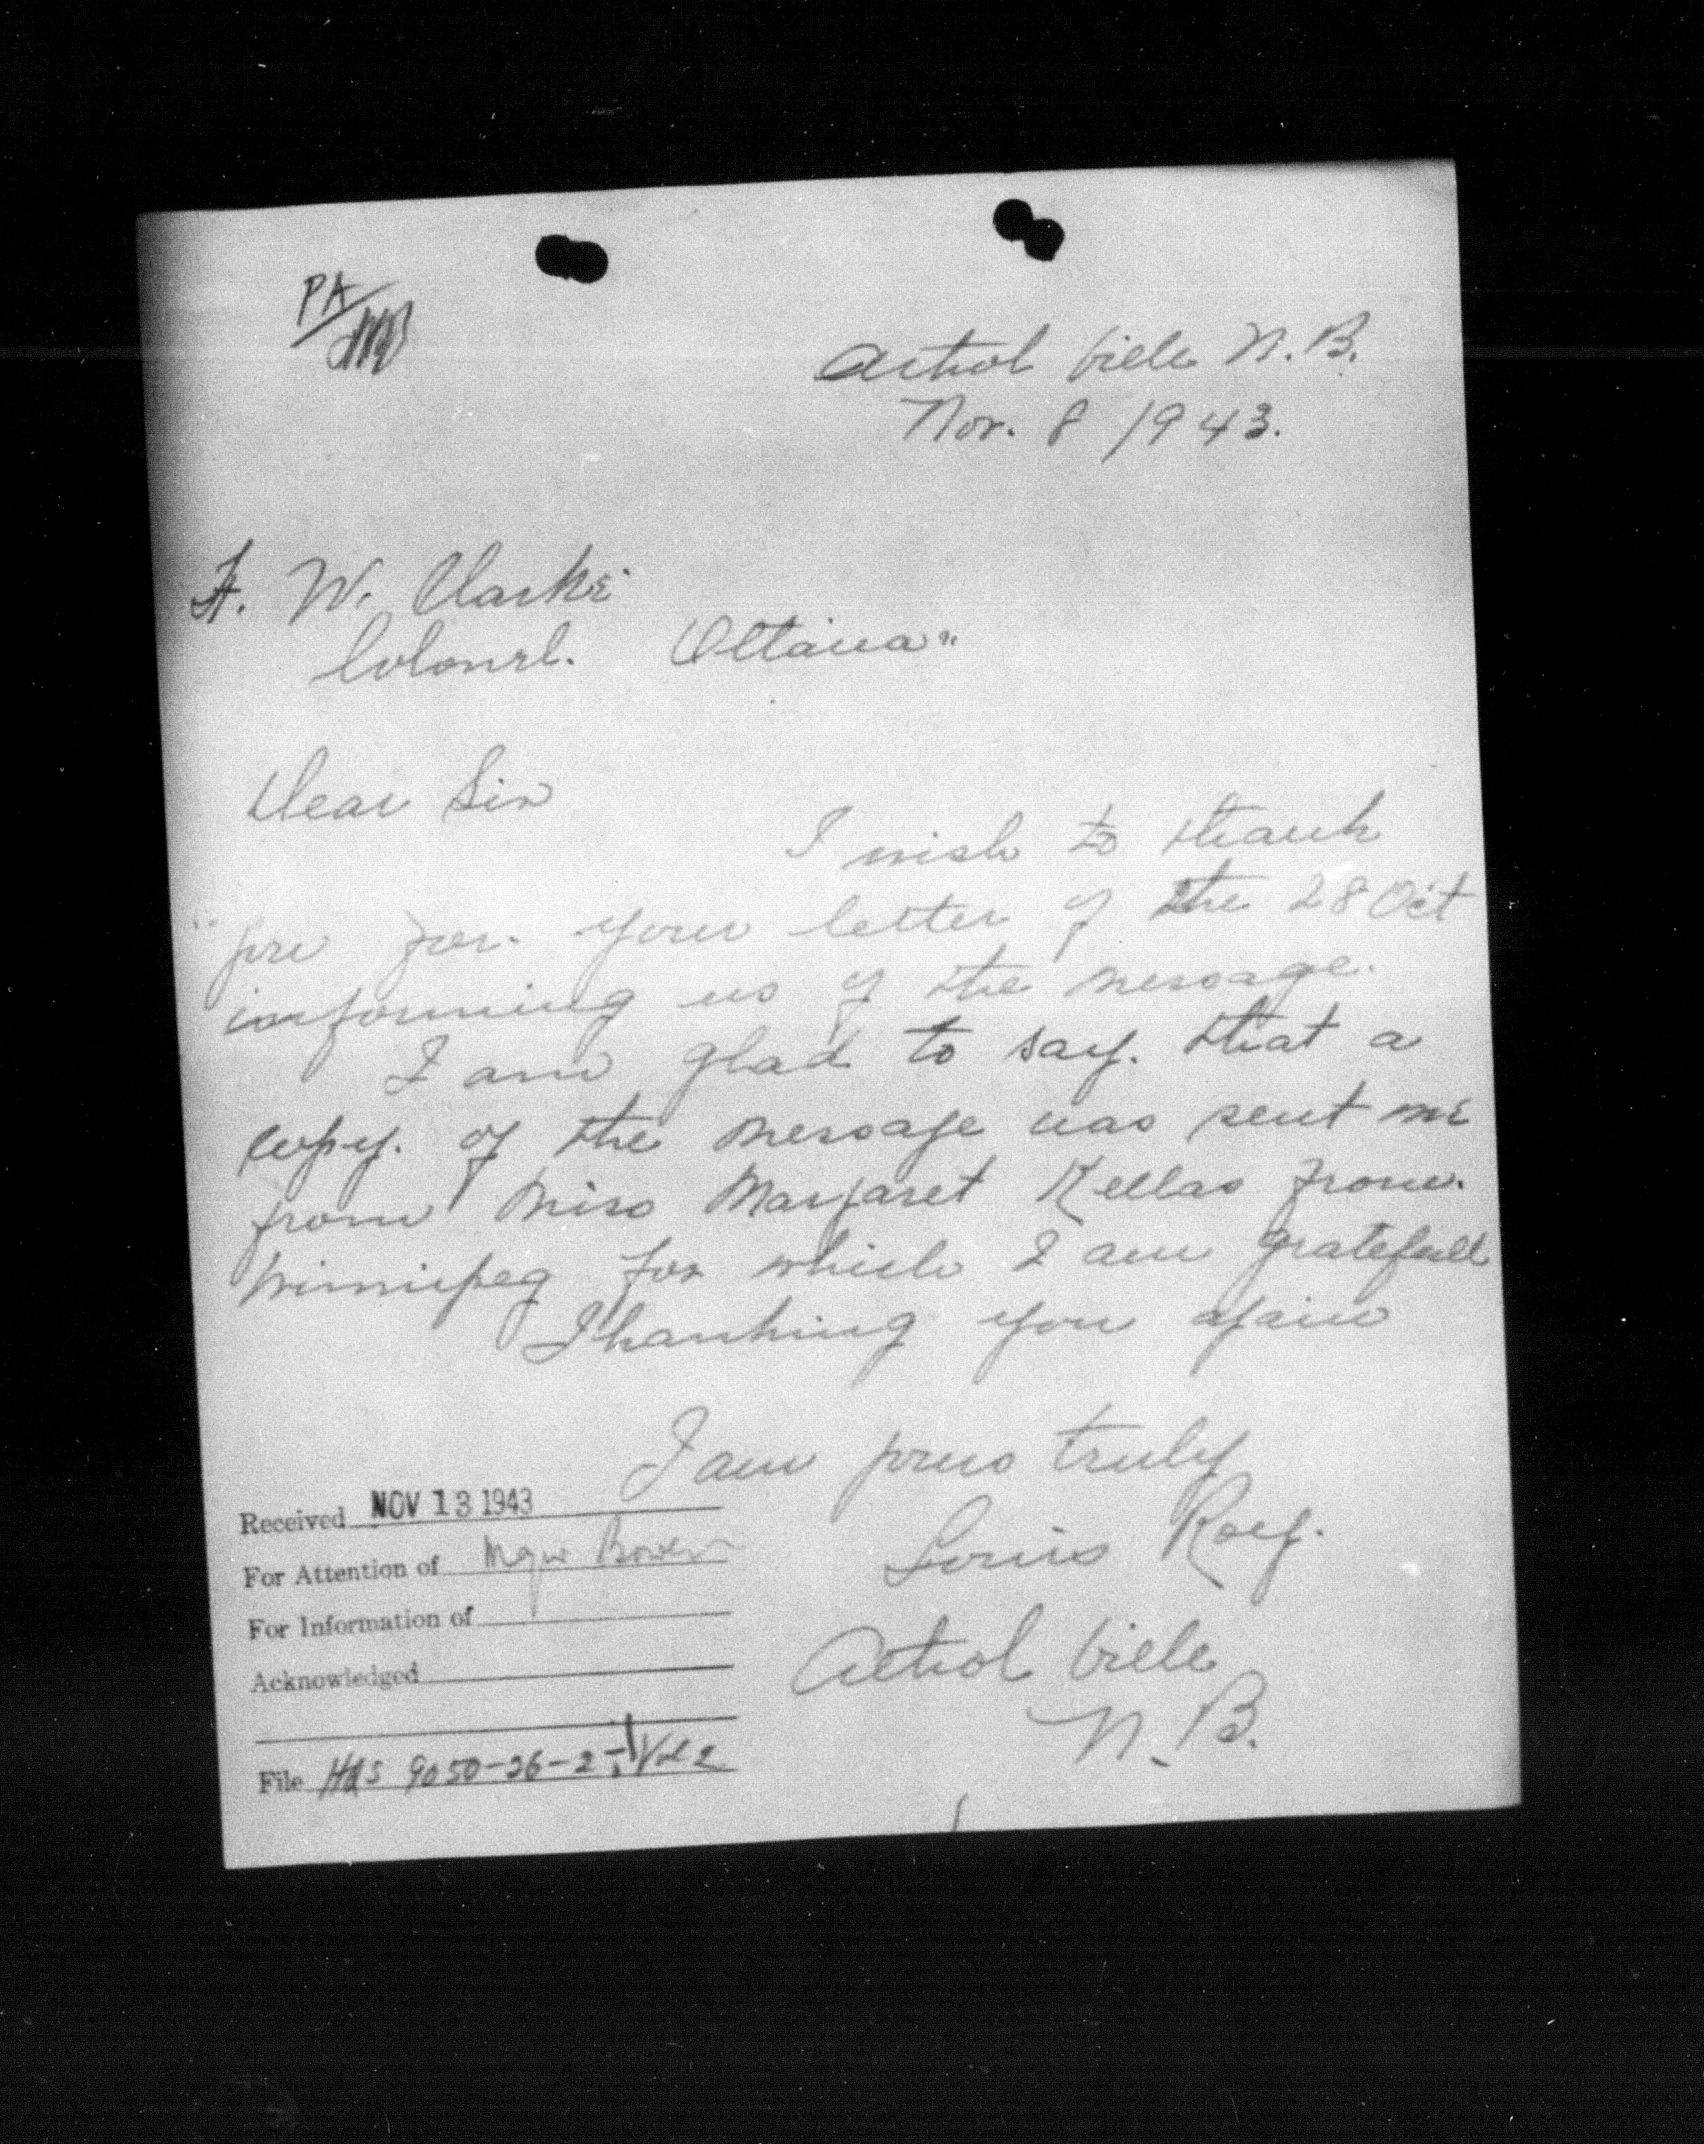 PA
Acthol Ville N.B.
Nov. 8 1943.
F. W. Clarke
Colonel. Ottawa"
Dear Sir
I wish to thank
you for. your letter of the 28 Oct
informing us of the message.
I am glad to say. that a
copy. of the message was sent me
from Miss Margaret Kellas from.
Winnipeg for which I am gratefull
Thanking you again
I am yours truly
Louis Roy.
Acthol Ville
N. B.
Received NOV 13 1943
For Attention of
For Information of
Acknowledged
File HQS 9050-26-2-1 Vol 2